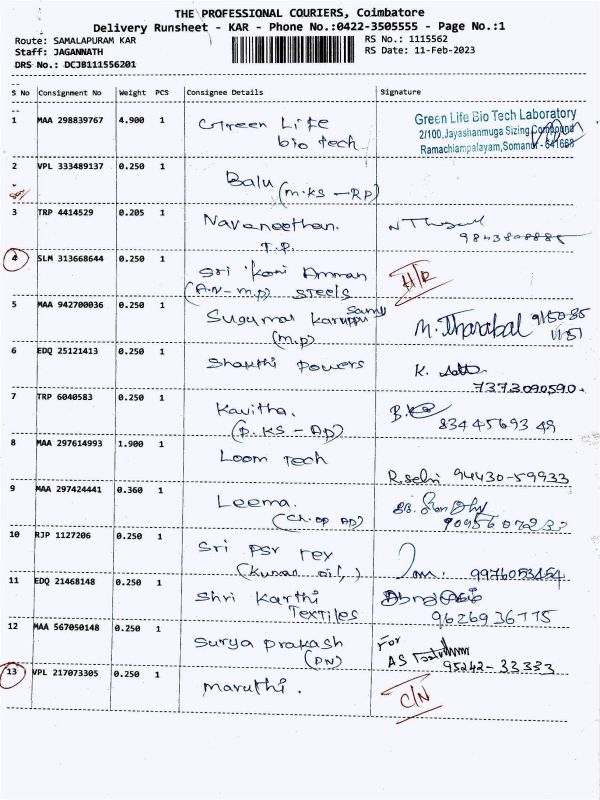 THE PROFESSIONAL COURIERS, Coimbatore
Delivery Runsheet - KAR - Phone No.:0422-3505555 - Page No.:1
Route: SAMALAPURAM KAR
RS No.: 1115562
Staff: JAGANNATH
RS Date: 11-Feb-2023
DRS No.: DCJB111556201
S No Consignment No Weight PCS Consignee Details Signature
1 MAA 298839767 4.900 1 Green Life
bio tech
Green Life Bio Tech Laboratory
2/100,Jayashanmuga Sizing,Compound
Ramachiampalayam,Somanur - 641668
2 VPL 333489137 0.250 1 Balu
(M.KS - RP)
3 TRP 4414529 0.205 1 Navaneethan.
T.P.
4 SLM 313668644 0.250 1 Sri Kani Amman
(A.N - M.P) Steels
H/R
5 MAA 942700036 0.250 1 Sugumar Karuppu Samy
(M.P)
M. Tharabal
6 EDQ 25121413 0.250 1 Shakthi Powers
K.
7373090590.
7 TRP 6040583 0.250 1 Kavitha.
(P.KS - AP)
83445693 49
8 MAA 297614993 1.900 1 Loom Tech
R.Selvi 94430-59933
9 MAA 297424441 0.360 1 Leema.
(Ch. op AP)
90956 07237
10 RJP 1127206 0.250 1 Sri PSR rey
(Kumar oil,)
9976053454
11 EDQ 21468148 0.250 1 Shri Karthi
Textiles
9626936775
12 MAA 567050148 0.250 1 Surya Prakash
(PN)
For
AS
95242-33333
13 VPL 217073305 0.250 1 Maruthi.
C/N